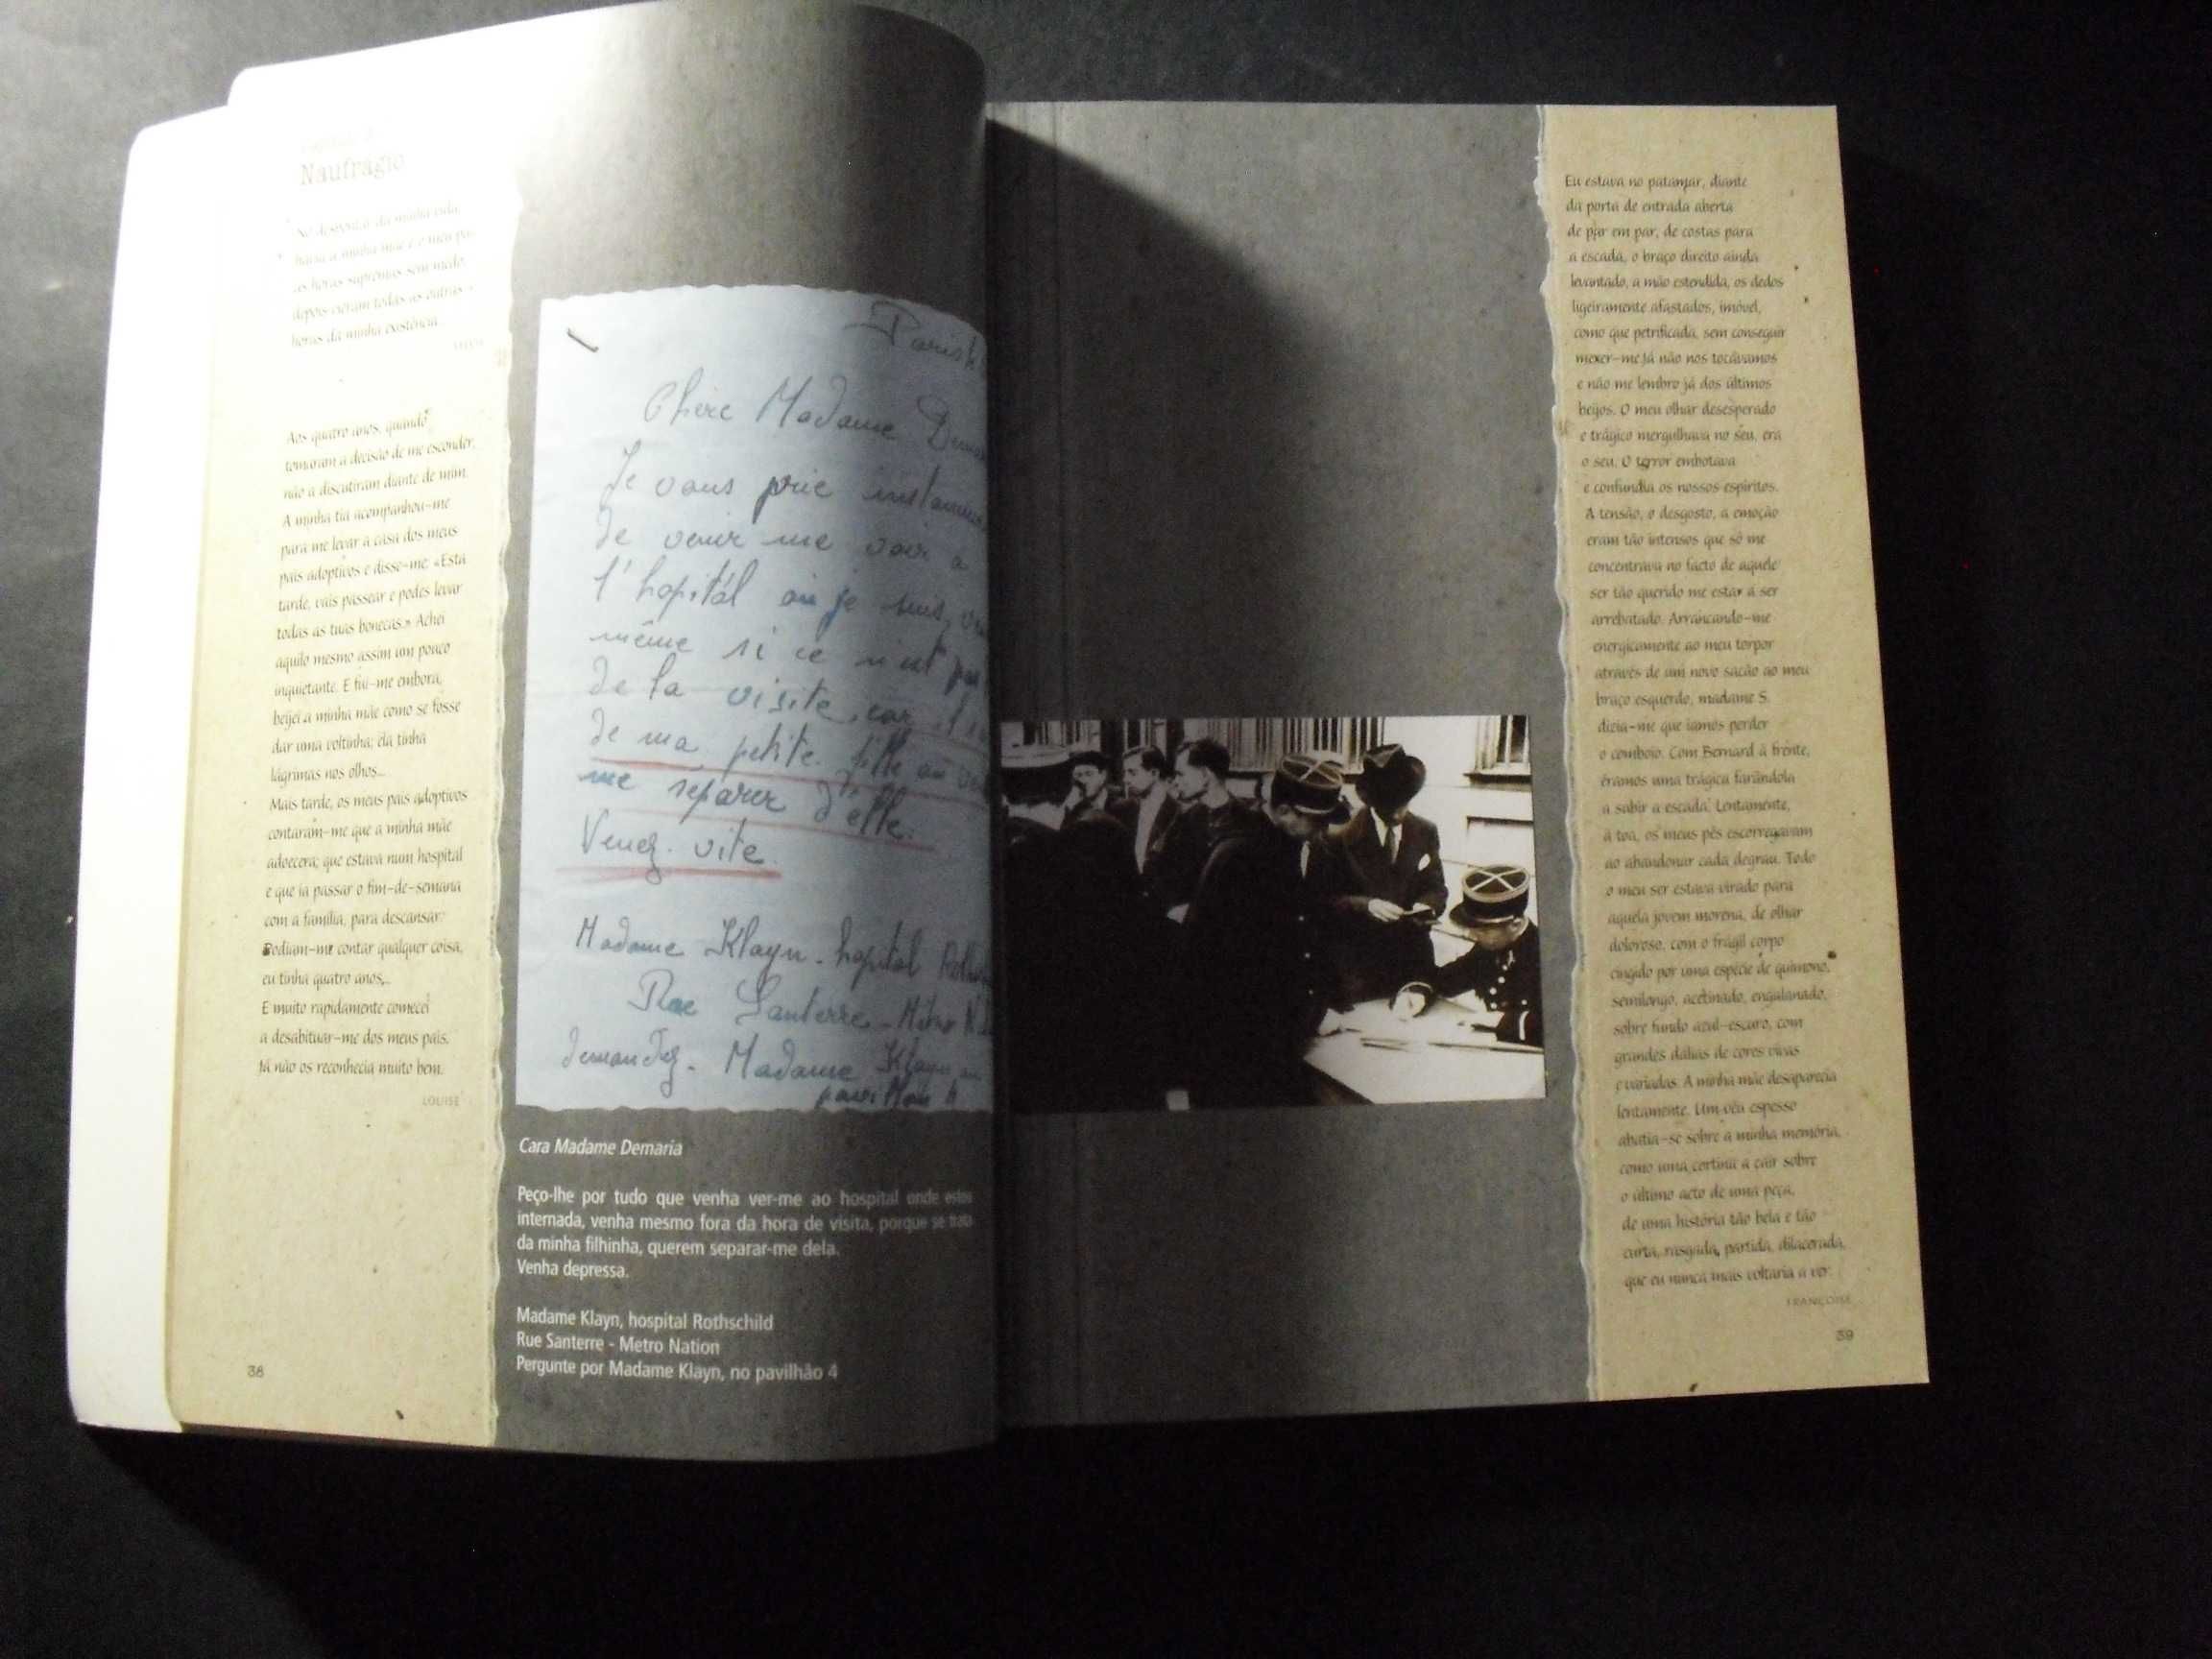 Naufrágio
da minha vida,
a minha mãe e o meu pai
as horas supremas sem medo,
depois vieram todas as outras
horas da minha existência.
Aos quatro anos, quando
tomaram a decisão de me esconder,
não a discutiram diante de mim.
A minha tia acompanhou-me
para me levar a casa dos meus
pais adoptivos e disse-me: «Esta
tarde, vais passear e podes levar
todas as tuas bonecas.» Achei
aquilo mesmo assim um pouco
inquietante. E fui-me embora,
beijei a minha mãe como se fosse
dar uma voltinha; ela tinha
lágrimas nos olhos...
Mais tarde, os meus pais adoptivos
contaram-me que a minha mãe
adoecera; que estava num hospital
e que ia passar o fim-de-semana
com a família, para descansar.
Podiam-me contar qualquer coisa,
eu tinha quatro anos...
E muito rapidamente comecei
a desabituar-me dos meus pais.
Já não os reconhecia muito bem.
LOUISE
38
Paris
Chère Madame
Je vous prie
de venir me voir à
l'hopital où je suis,
même si ce n'est pas
de la visite, car
de ma petite fille on
me séparer d'elle.
Venez vite.
Madame Klayn - hopital
Rue Santerre - Métro
demandez. Madame Klayn au
pavillon 4
Cara Madame Demaria
Peço-lhe por tudo que venha ver-me ao hospital onde estou
internada, venha mesmo fora da hora de visita, porque se trata
da minha filhinha, querem separar-me dela.
Venha depressa.
Madame Klayn, hospital Rothschild
Rue Santerre - Metro Nation
Pergunte por Madame Klayn, no pavilhão 4
Eu estava no patamar, diante
da porta de entrada aberta
de par em par, de costas para
a escada, o braço direito ainda
levantado, a mão estendida, os dedos
ligeiramente afastados, imóvel,
como que petrificada, sem conseguir
mexer-me. Já não nos tocávamos
e não me lembro já dos últimos
beijos. O meu olhar desesperado
e trágico mergulhava no seu, era
o seu. O terror embotava
e confundia os nossos espíritos.
A tensão, o desgosto, a emoção
eram tão intensos que só me
concentrava no facto de aquele
ser tão querido me estar a ser
arrebatado. Arrancando-me
energicamente ao meu torpor
através de um novo sacão ao meu
braço esquerdo, madame S.
dizia-me que íamos perder
o comboio. Com Bernard à frente,
éramos uma trágica farândola
a subir a escada. Lentamente,
à toa, os meus pés escorregavam
ao abandonar cada degrau. Todo
o meu ser estava virado para
aquela jovem morena, de olhar
doloroso, com o frágil corpo
cingido por uma espécie de quimono,
semilongo, acetinado, engalanado,
sobre fundo azul-escuro, com
grandes dálias de cores vivas
e variadas. A minha mãe desaparecia
lentamente. Um véu espesso
abatia-se sobre a minha memória,
como uma cortina a cair sobre
o último acto de uma peça,
de uma história tão bela e tão
curta, rasgada, partida, dilacerada,
que eu nunca mais voltaria a ver.
FRANÇOISE
39